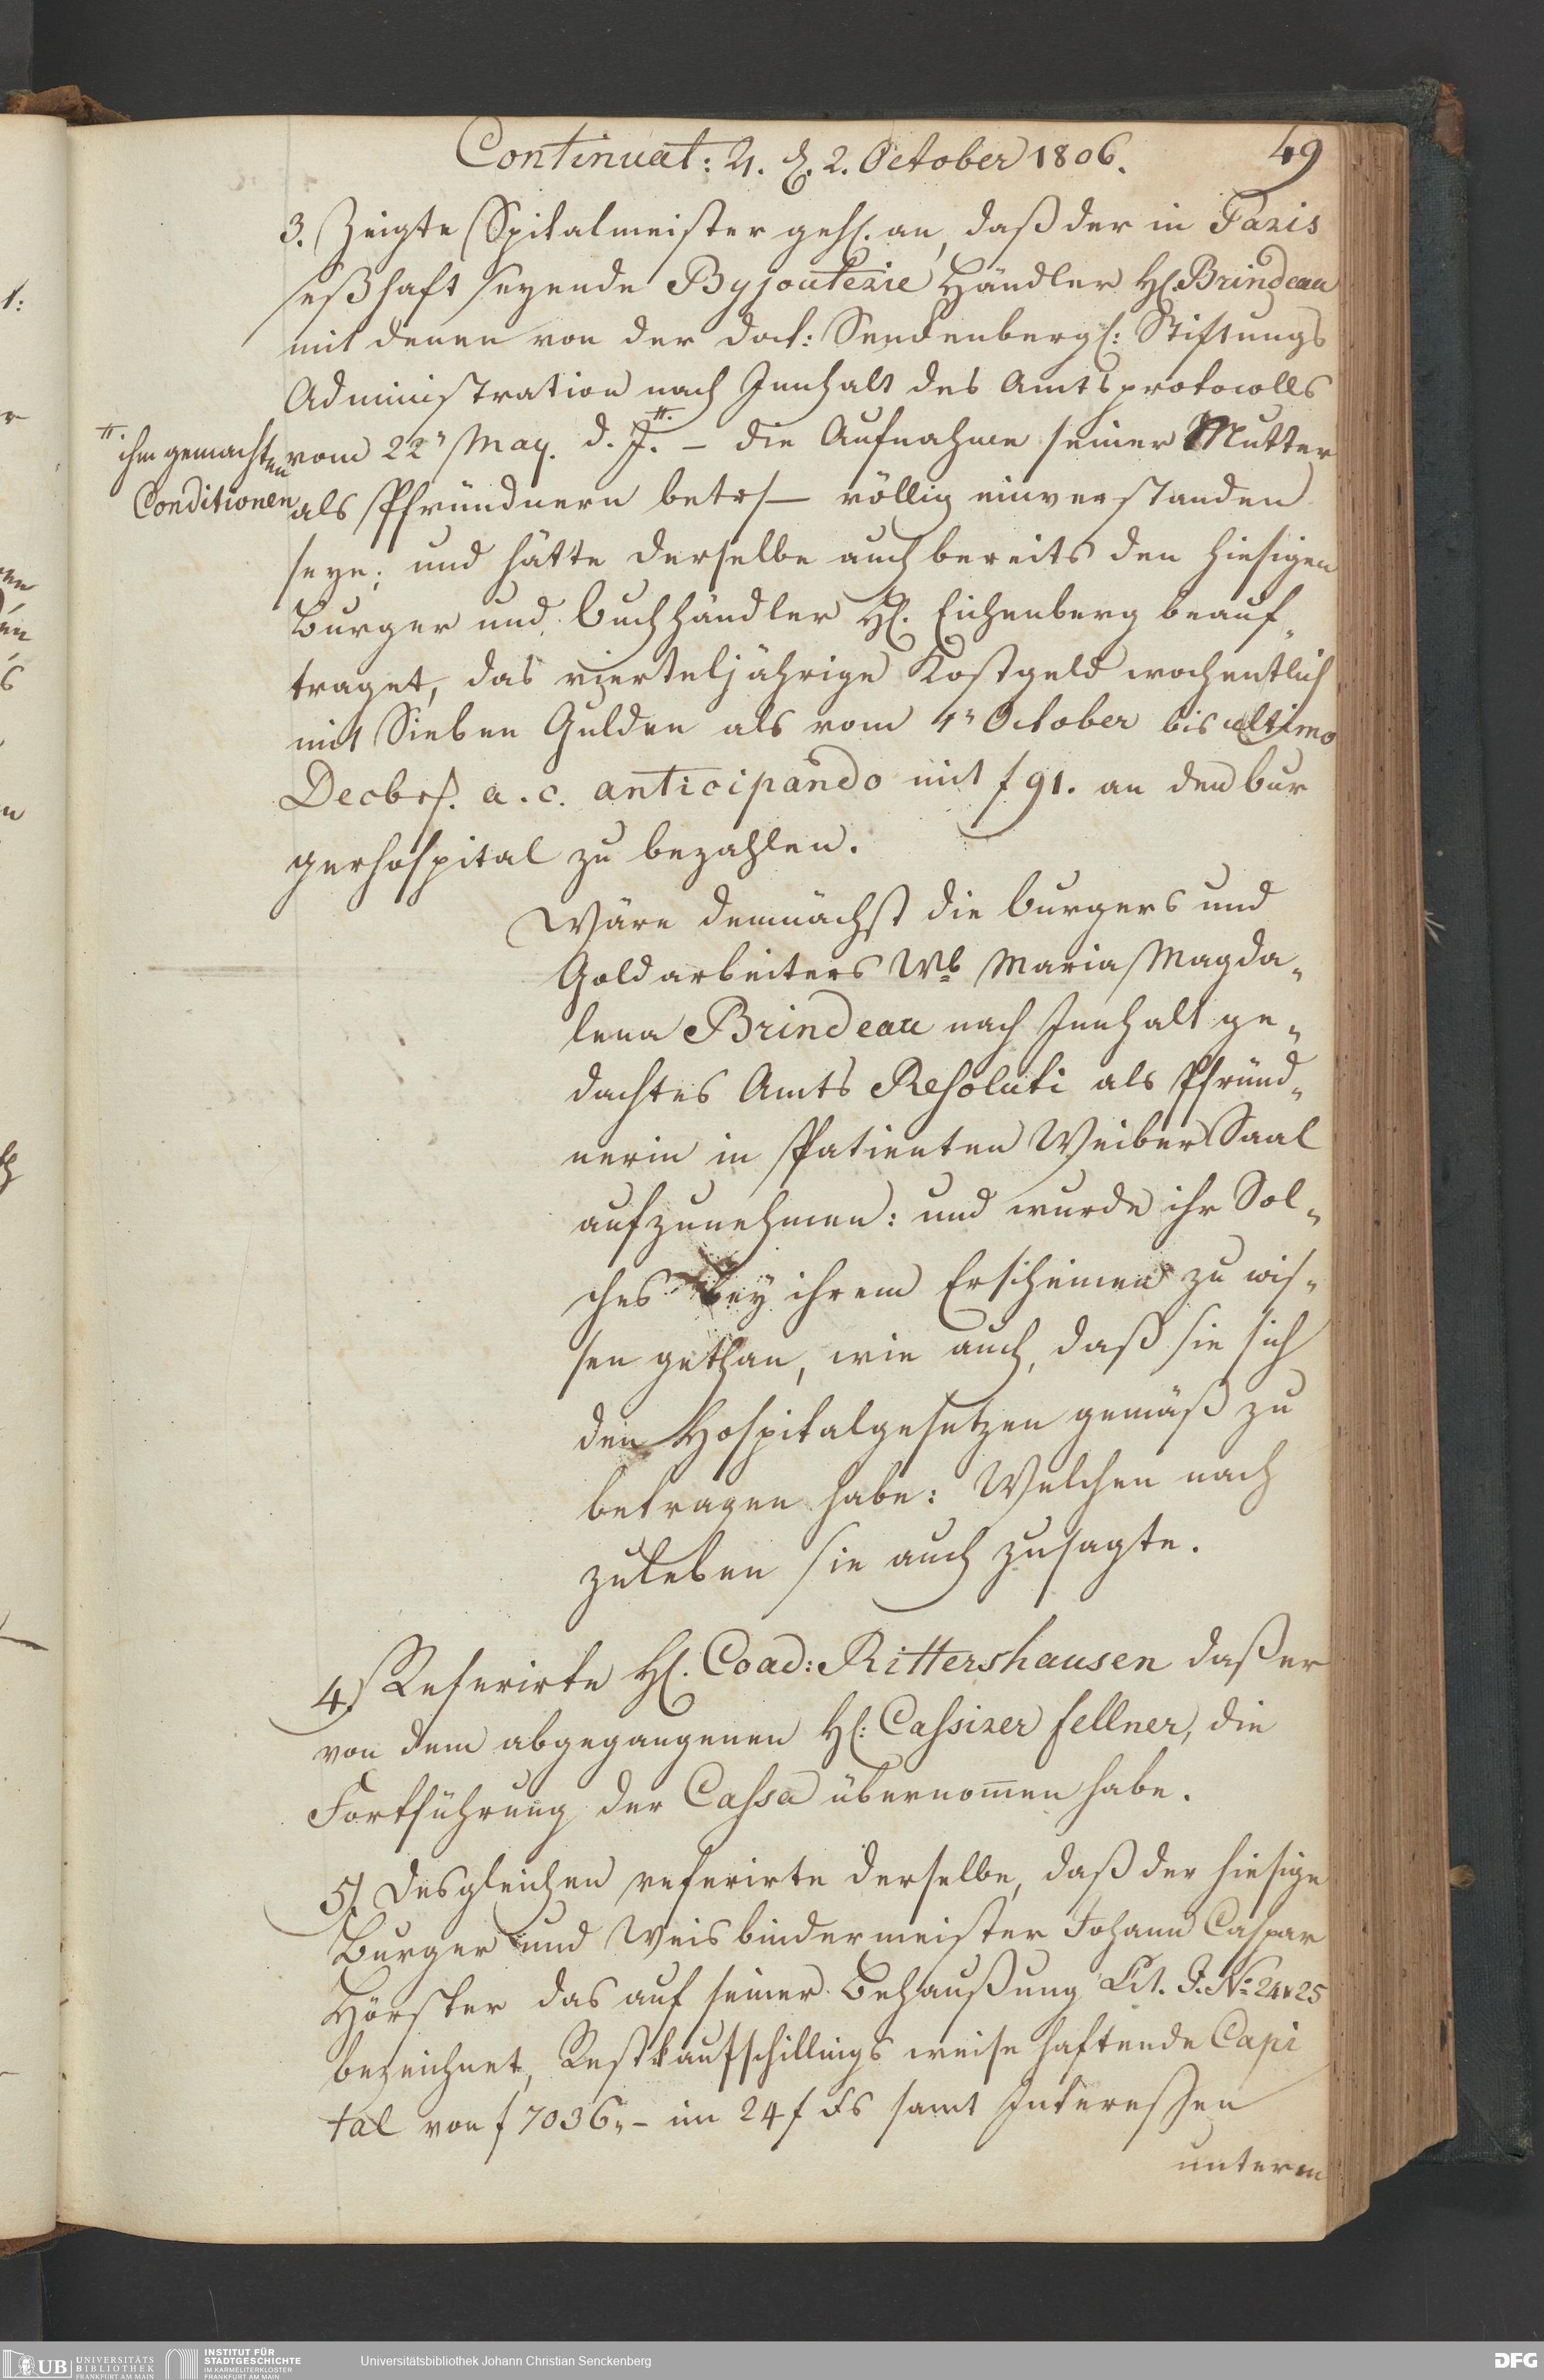 Continuat: 21. d. 2. October 1806.
49
3. Zeigte Spitalmeister geh. an, daß der in Paris
seßhaft seyende Byjouterie Händler H. Brindeau
mit denen von der doct: Senckenbergl: Stiftungs
Administration nach Innhalt des Amtsprotocolls
vom 22n May d. J. #. – die Aufnahme seiner Mutter
#. ihm gemachten
Conditionen
als Pfründnern betr – völlig einverstanden
seye; und hätte derselbe auch bereits den hiesigen
Burger und Buchhändler H. Eichenberg beauf„
traget, das vierteljährige Kostgeld wochentlich
mit Sieben Gulden als vom 1n October bis ultimo
Decbr. a. c. anticipando mit f 91. an den bur
gerhospital zu bezahlen.
Wäre demnächst die burgers und
Goldarbeiters Wb Maria Magda„
lena Brindeau nach Innhalt ge„
dachtes Amts Resoluti als Pfründ„
nerin in Patienten Weiber Saal
aufzunehmen: und wurde ihr Sol„
ches bey ihrem Erscheinen zu wis„
sen gethan, wie auch, daß sie sich
den Hospitalgesetzen gemäß zu
betragen habe: Welchen nach
zuleben sie auch zusagte.
4.) Referirte H. Coad: Rittershausen daß er
von dem abgegangenen H: Cassirer Fellner, die
Fortführung der Cassa übernom̅en habe.
5.) Desgleichen referirte derselbe, daß der hiesige
Burger und Weisbindermeister Johann Caspar
Hörster das auf seiner Behaußung Lit. J. No: 24 & 25
bezeichnet, Restkaufschillings weise haftende Capi
tal von f 7036„– im 24 f Fs samt Interessen
unterm
UB UNIVERSITÄTS
BIBLIOTHEK
FRANKFURT AM MAIN
INSTITUT FÜR
STADTGESCHICHTE
IM KARMELITERKLOSTER
FRANKFURT AM MAIN
Universitätsbibliothek Johann Christian Senckenberg
DFG